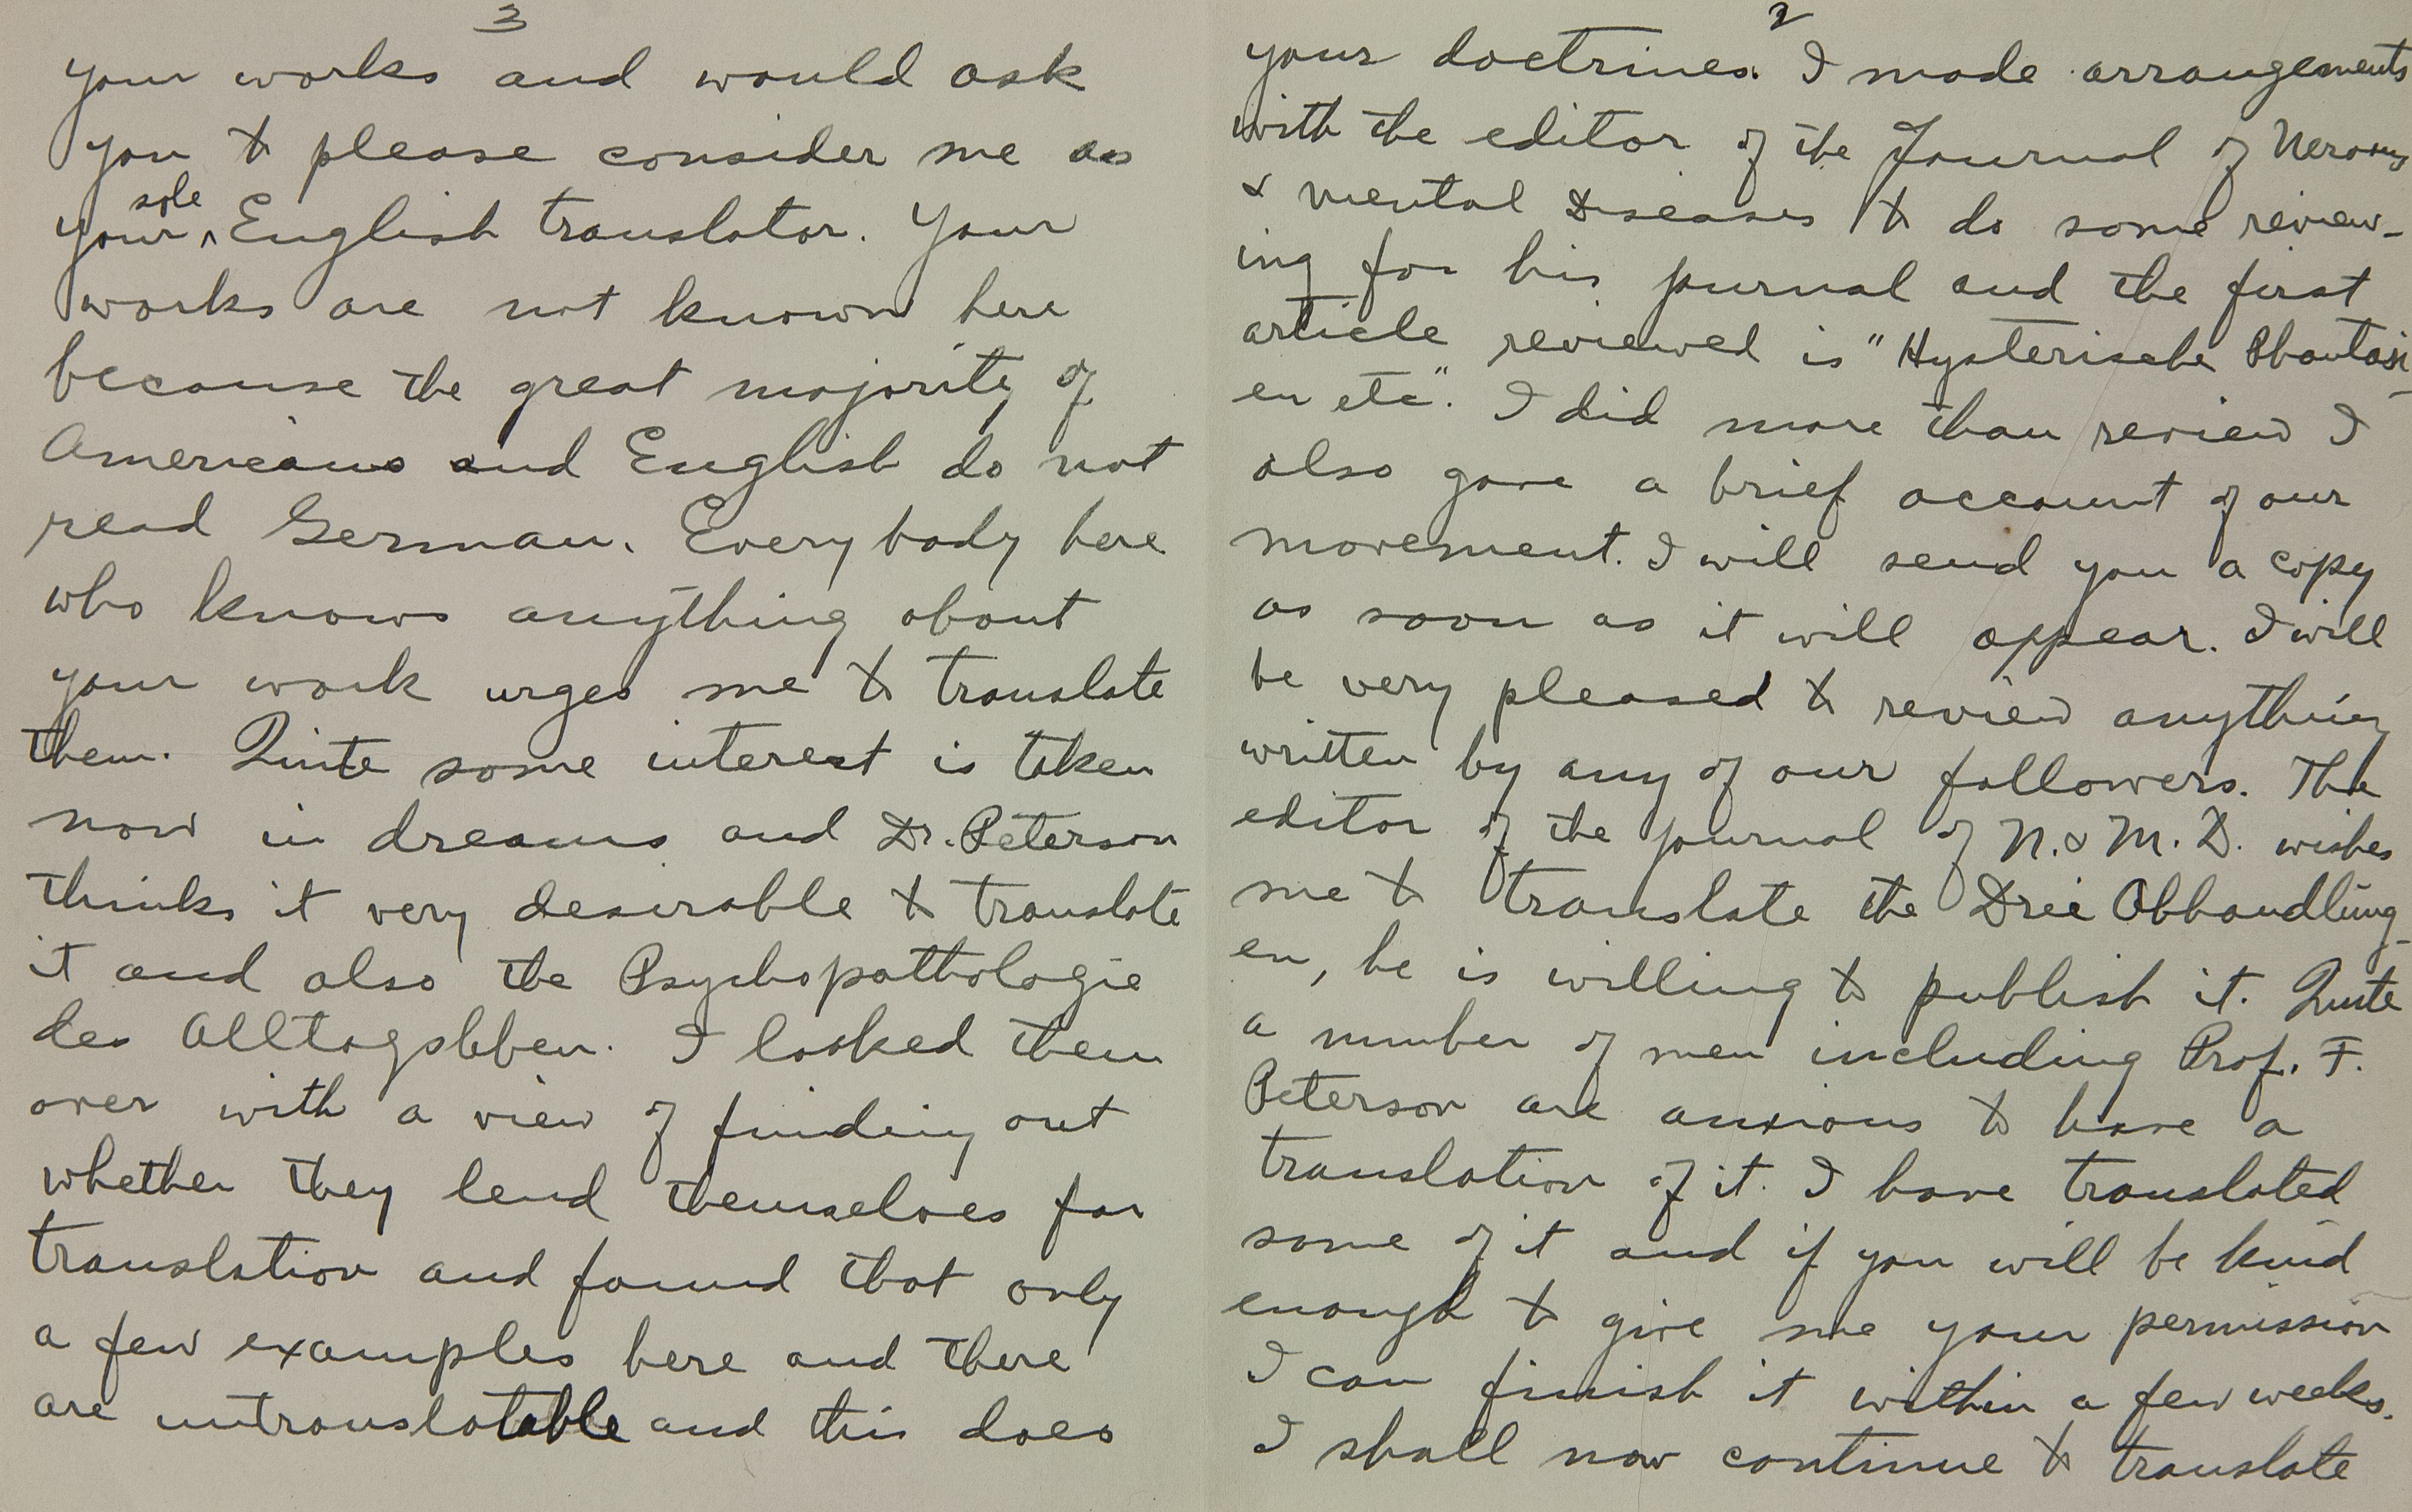 2
your doctrines. I made arrangements
with the editor of the Journal of Nervous
& mental Diseases to do some review-
ing for his journal and the first
article reviewed is "Hysterische Phantasi-
en etc". I did more than review I
also gave a brief account of our
movement. I will send you a copy
as soon as it will appear. I will
be very pleased to review anything
written by any of our followers. The
editor of the journal of N. & M. D. wishes
me to translate the Drei Abhandlung-
en, he is willing to publish it. Quite
a number of men including Prof. F.
Peterson are anxious to have a
translation of it. I have translated
some of it and if you will be kind
enough to give me your permission
I can finish it within a few weeks.
I shall now continue to translate
3
your works and would ask
you to please consider me as
your sole English translator. Your
works are not known here
because the great majority of
Americans and English do not
read German. Every body here
who knows anything about
your work urges me to translate
them. Quite some interest is taken
now in dreams and Dr. Peterson
thinks it very desirable to translate
it and also the Psychopathologie
des Alltagsleben. I looked them
over with a view of finding out
whether they lend themselves for
translation and found that only
a few examples here and there
are untranslatable and this does